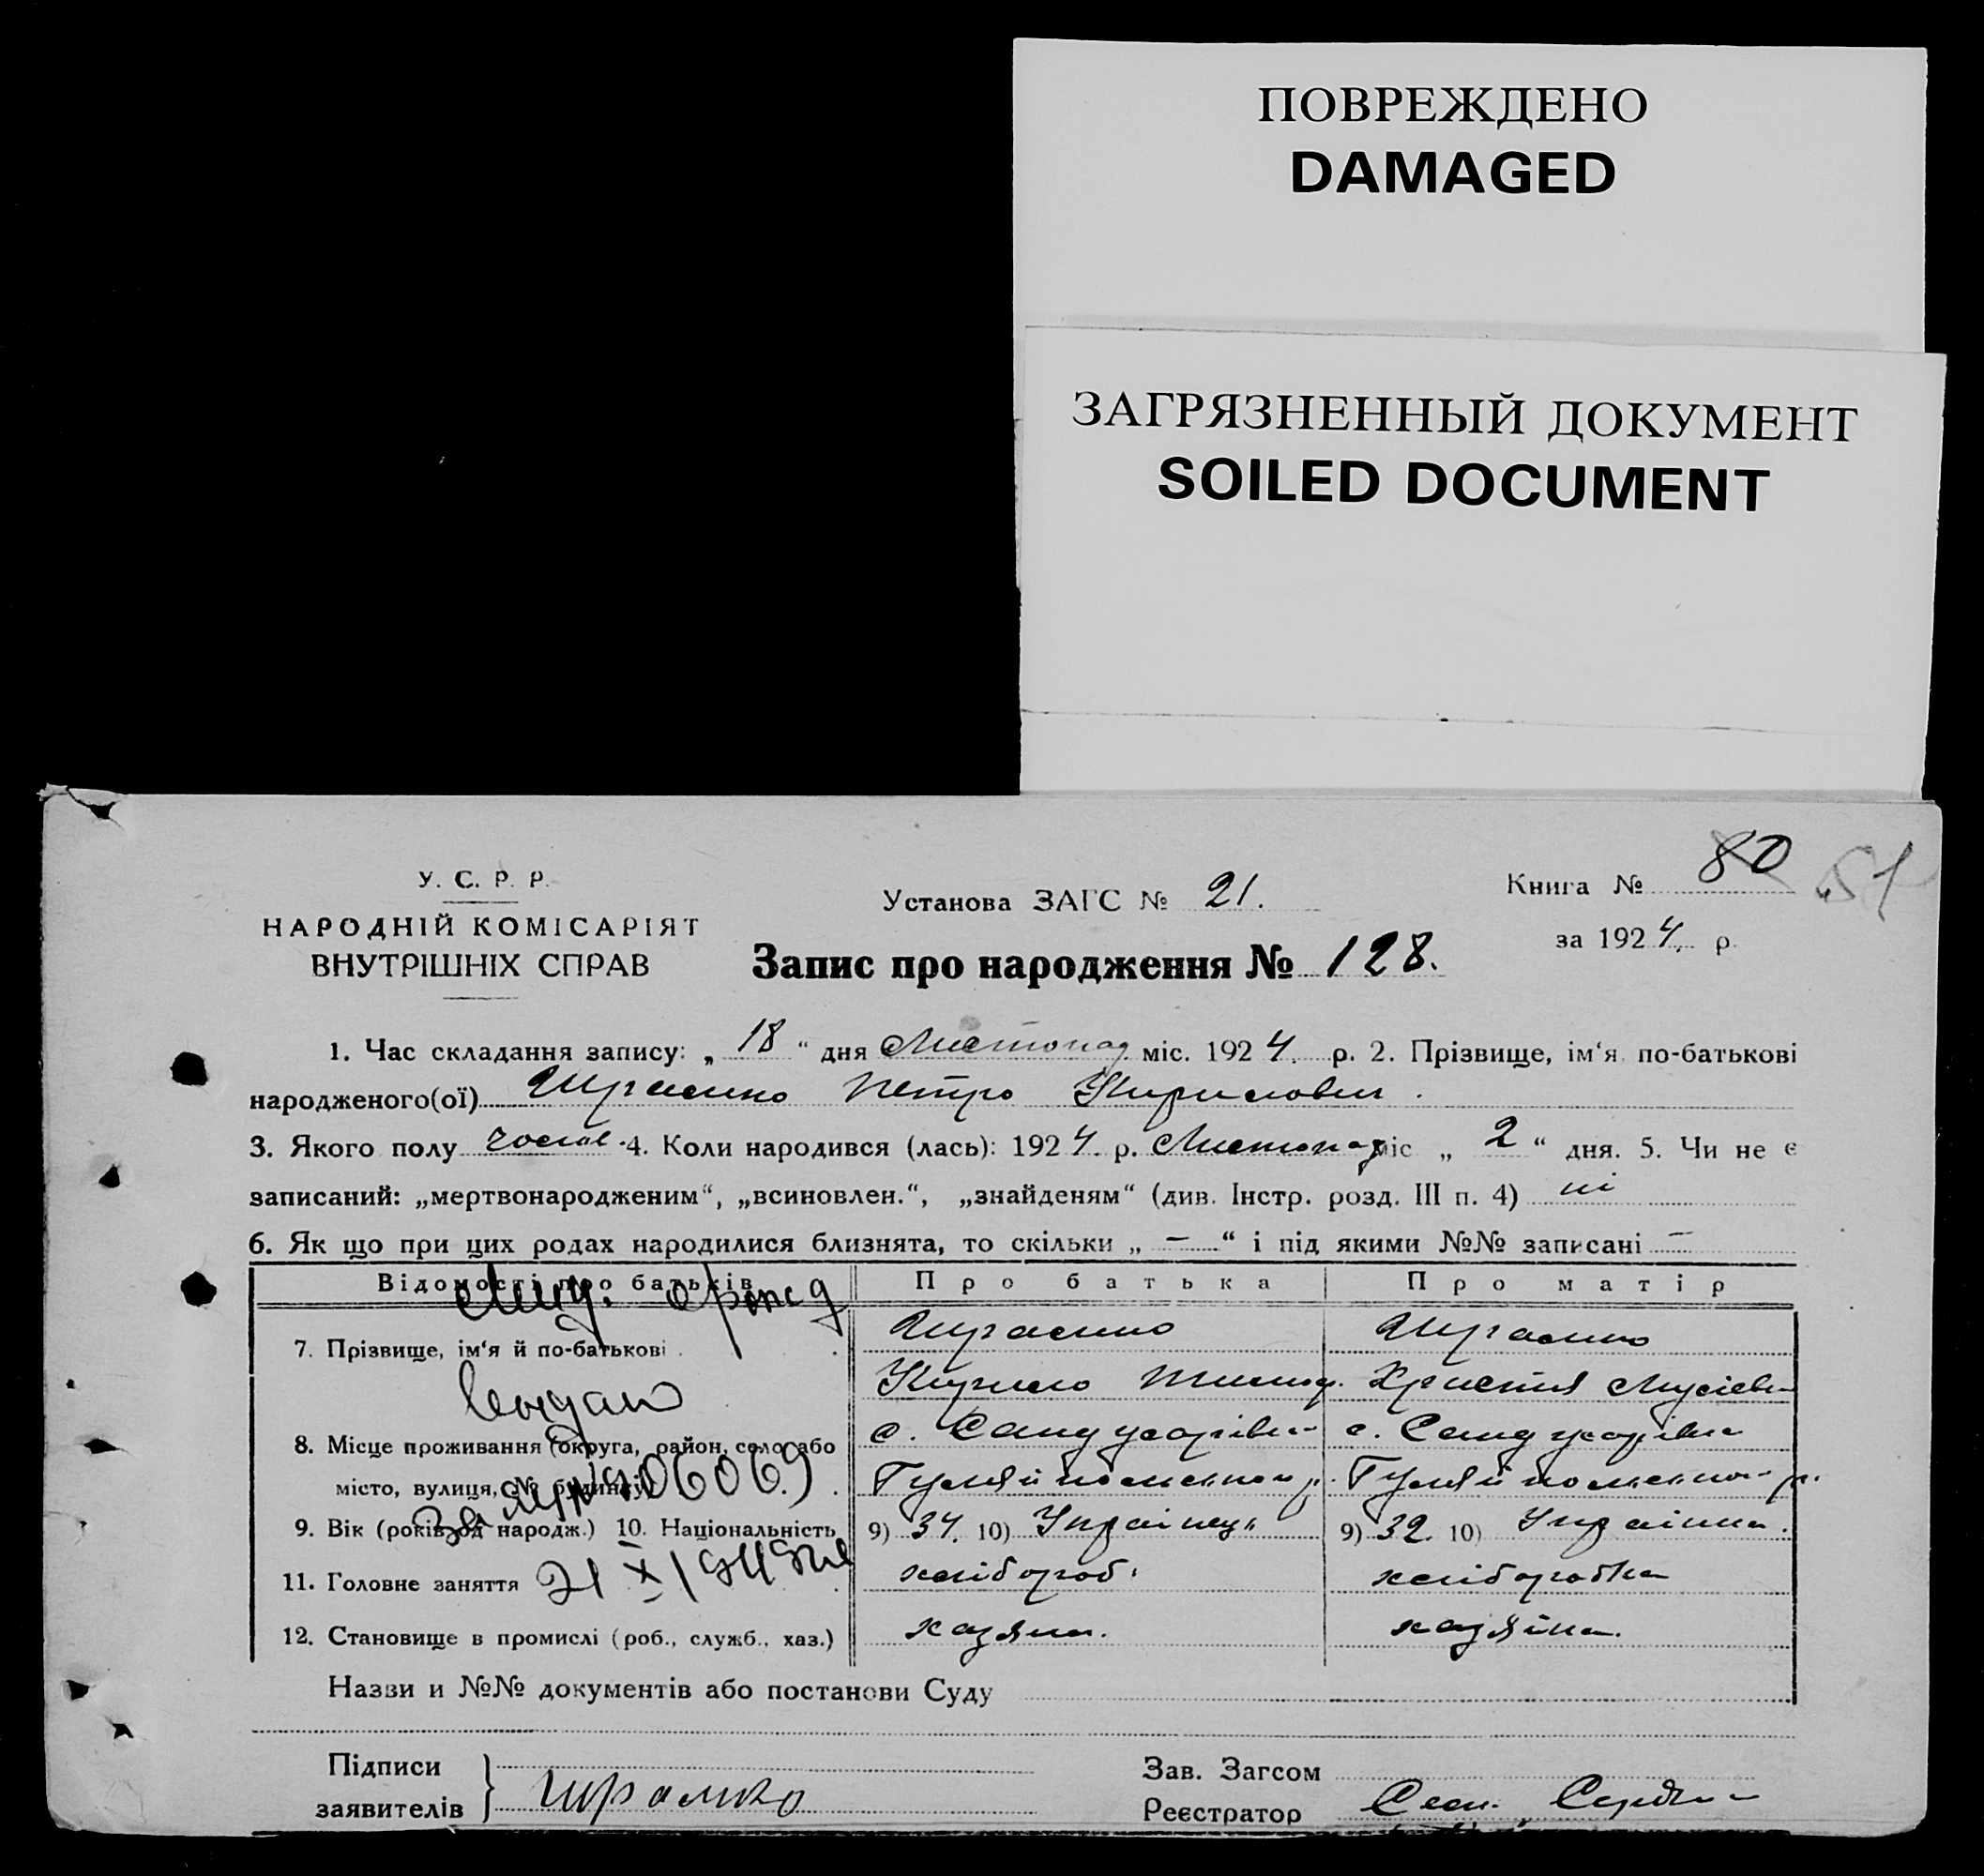 ПОВРЕЖДЕНО
DAMAGED
ЗАГРЯЗНЕННЫЙ ДОКУМЕНТ
SOILED DOCUMENT
У. С. Р. Р.
НАРОДНІЙ КОМІСАРІЯТ
ВНУТРІШНІХ СПРАВ
Установа ЗАГС № 21.
Книга № 80 51
за 1924. р.
Запис про народження № 128.
1. Час складання запису: „ 18 “ дня Листопад міс. 1924. р. 2. Прізвище, ім‘я по-батькові
народженого(ої) Петро Кирилович.
3. Якого полу 4. Коли народився (лась): 1924. р. Листопад міс „ 2 “ дня. 5. Чи не є
записаний: „мертвонародженим“, „всиновлен.“, „знайденям“ (див. Інстр. розд. III п. 4) ні
6. Як що при цих родах народилися близнята, то скільки „ — “ і під якими №№ записані —
Відомості про батьків Про батька Про матір
7. Прізвище, ім‘я й по-батькові
Кирило Христя
8. Місце проживання (округа, район, село, або
місто, вулиця, № будинку)
Гуляйпольськог р. Гуляйпольськог р.
9. Вік (років од народж.) 10. Національність 9) 34. 10) Українець 9) 32. 10) Українка.
11. Головне заняття хлібороб. хлібороб​ка
12. Становище в промислі (роб., служб., хаз.) хазяин. хазяйка.
Назви и №№ документів або постанови Суду
Підписи
заявителів
Зав. Загсом
Реєстратор